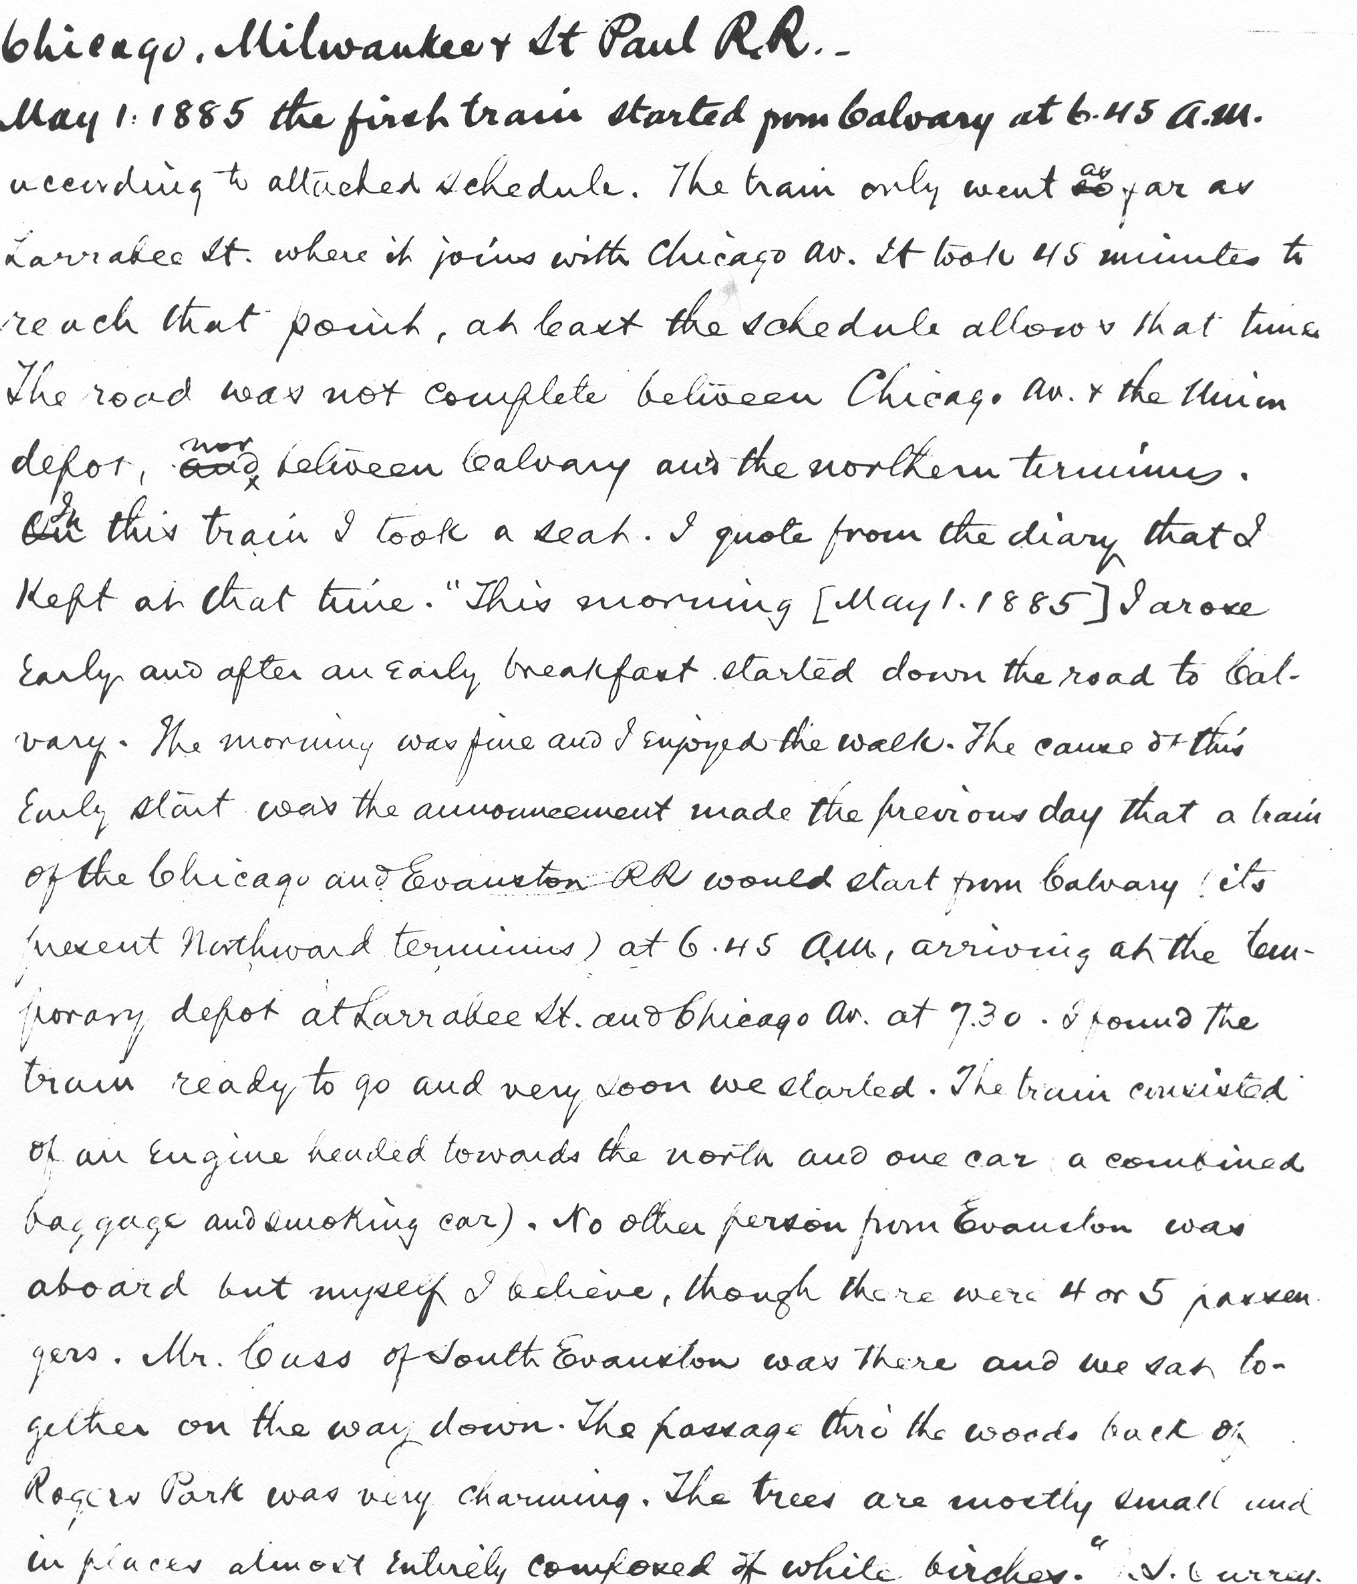 Chicago, Milwaukee & St Paul R.R. -
May 1. 1885 the first train started from Calvary at 6.45 A.M.
according to attached schedule. The train only went so as far as
Larrabee St. where it joins with Chicago Av. It took 45 minutes to
reach that point, at least the schedule allows that time
The road was not complete between Chicago Av. & the Union
depot, and nor between Calvary and the northern terminus.
On In this train I took a seat. I quote from the diary that I
Kept at that time. "This morning [May 1. 1885] I arose
Early and after an Early breakfast started down the road to Cal-
vary. The morning was fine and I Enjoyed the walk. The cause of this
Early start was the announcement made the previous day that a train
of the Chicago and Evanston RR would start from Calvary (its
present Northward terminus) at 6.45 A.M., arriving at the tem-
porary depot at Larrabee St. and Chicago Av. at 7.30. I found the
train ready to go and very soon we started. The train consisted
of an Engine headed towards the north and one car a combined
baggage and smoking car). No other person from Evanston was
aboard but myself I believe, though there were 4 or 5 passen
gers. Mr. Cass of South Evanston was there and we sat to-
gether on the way down. The passage thro' the woods back of
Rogers Park was very charming. The trees are mostly small and
in places almost Entirely composed of white birches." J. S. Currey.